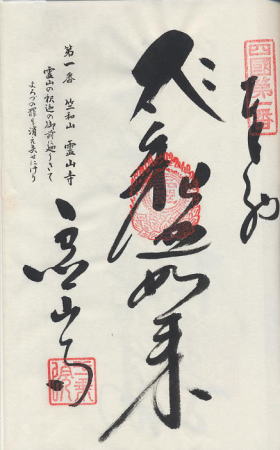 四國第一番
奉納
釈迦如来
第一番 竺和山 霊山寺
霊山の釈迦の御前に巡りきて
よろづの罪も消え失せにけり
霊山寺